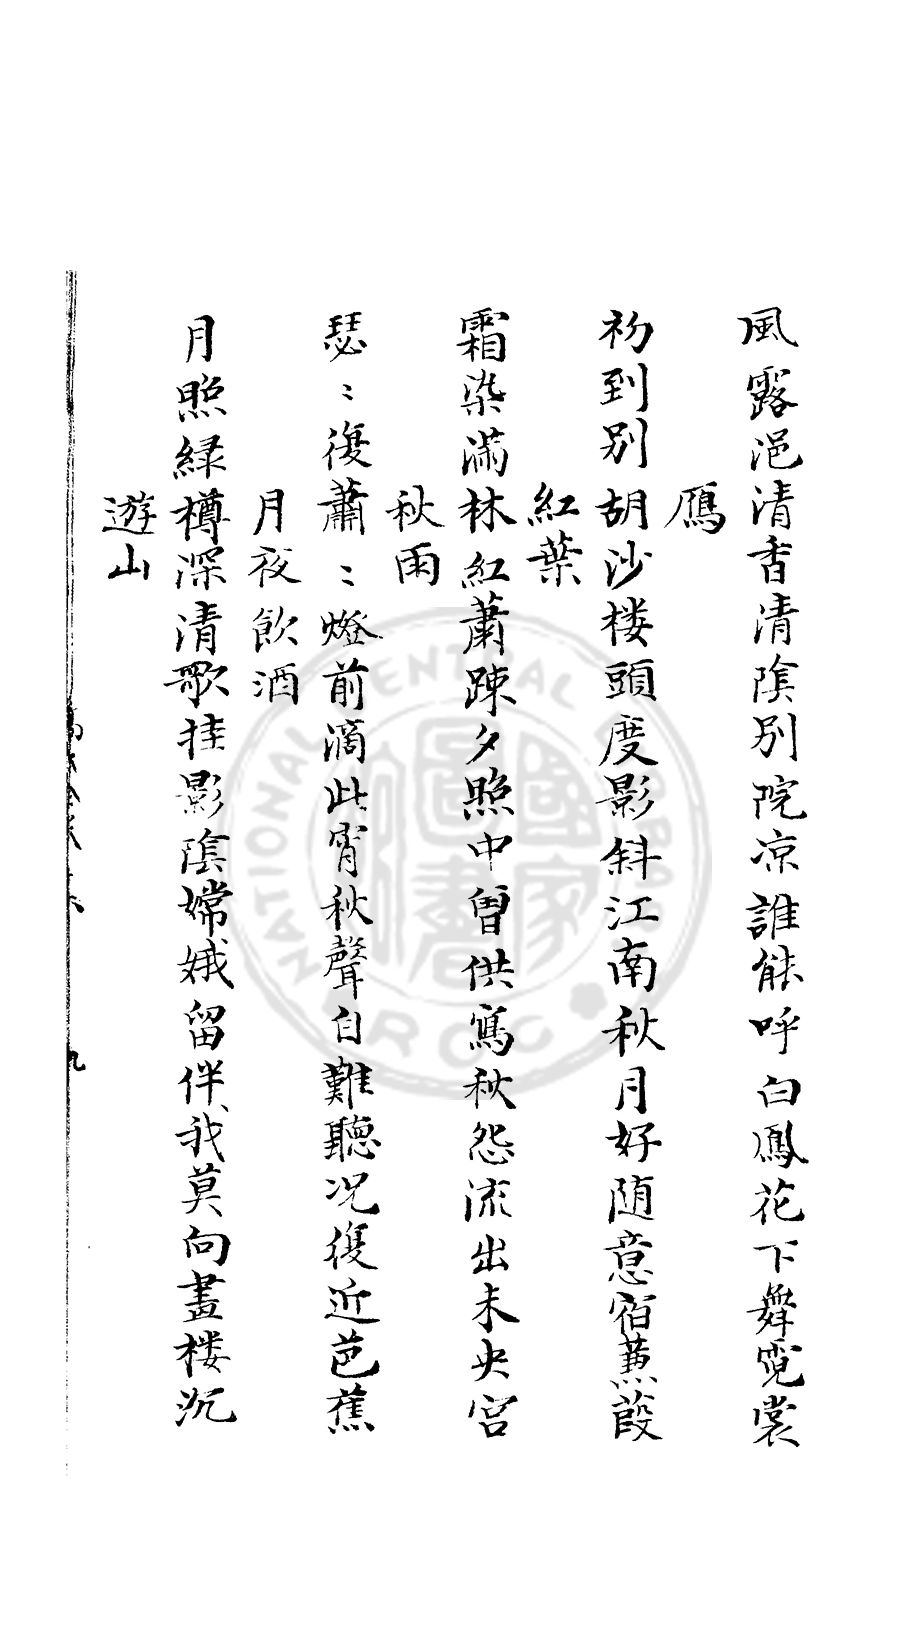 風露浥清香清陰別院凉誰能呼白鳳花下舞霓裳
鴈
初到別胡沙楼頭度影斜江南秋月好随意宿蒹葭
紅葉
霜染滿林紅蕭踈夕照中曽供寫秋怨流出未央宮
秋雨
瑟〻復蕭〻燈前滴此宵秋聲自難聽况復近芭蕉
月夜飲酒
月照緑樽深清歌挂影陰嫦娥留伴我莫向畫楼沉
遊山
九
NATIONAL CENTRAL LIBRARY
ROC
國家圖書